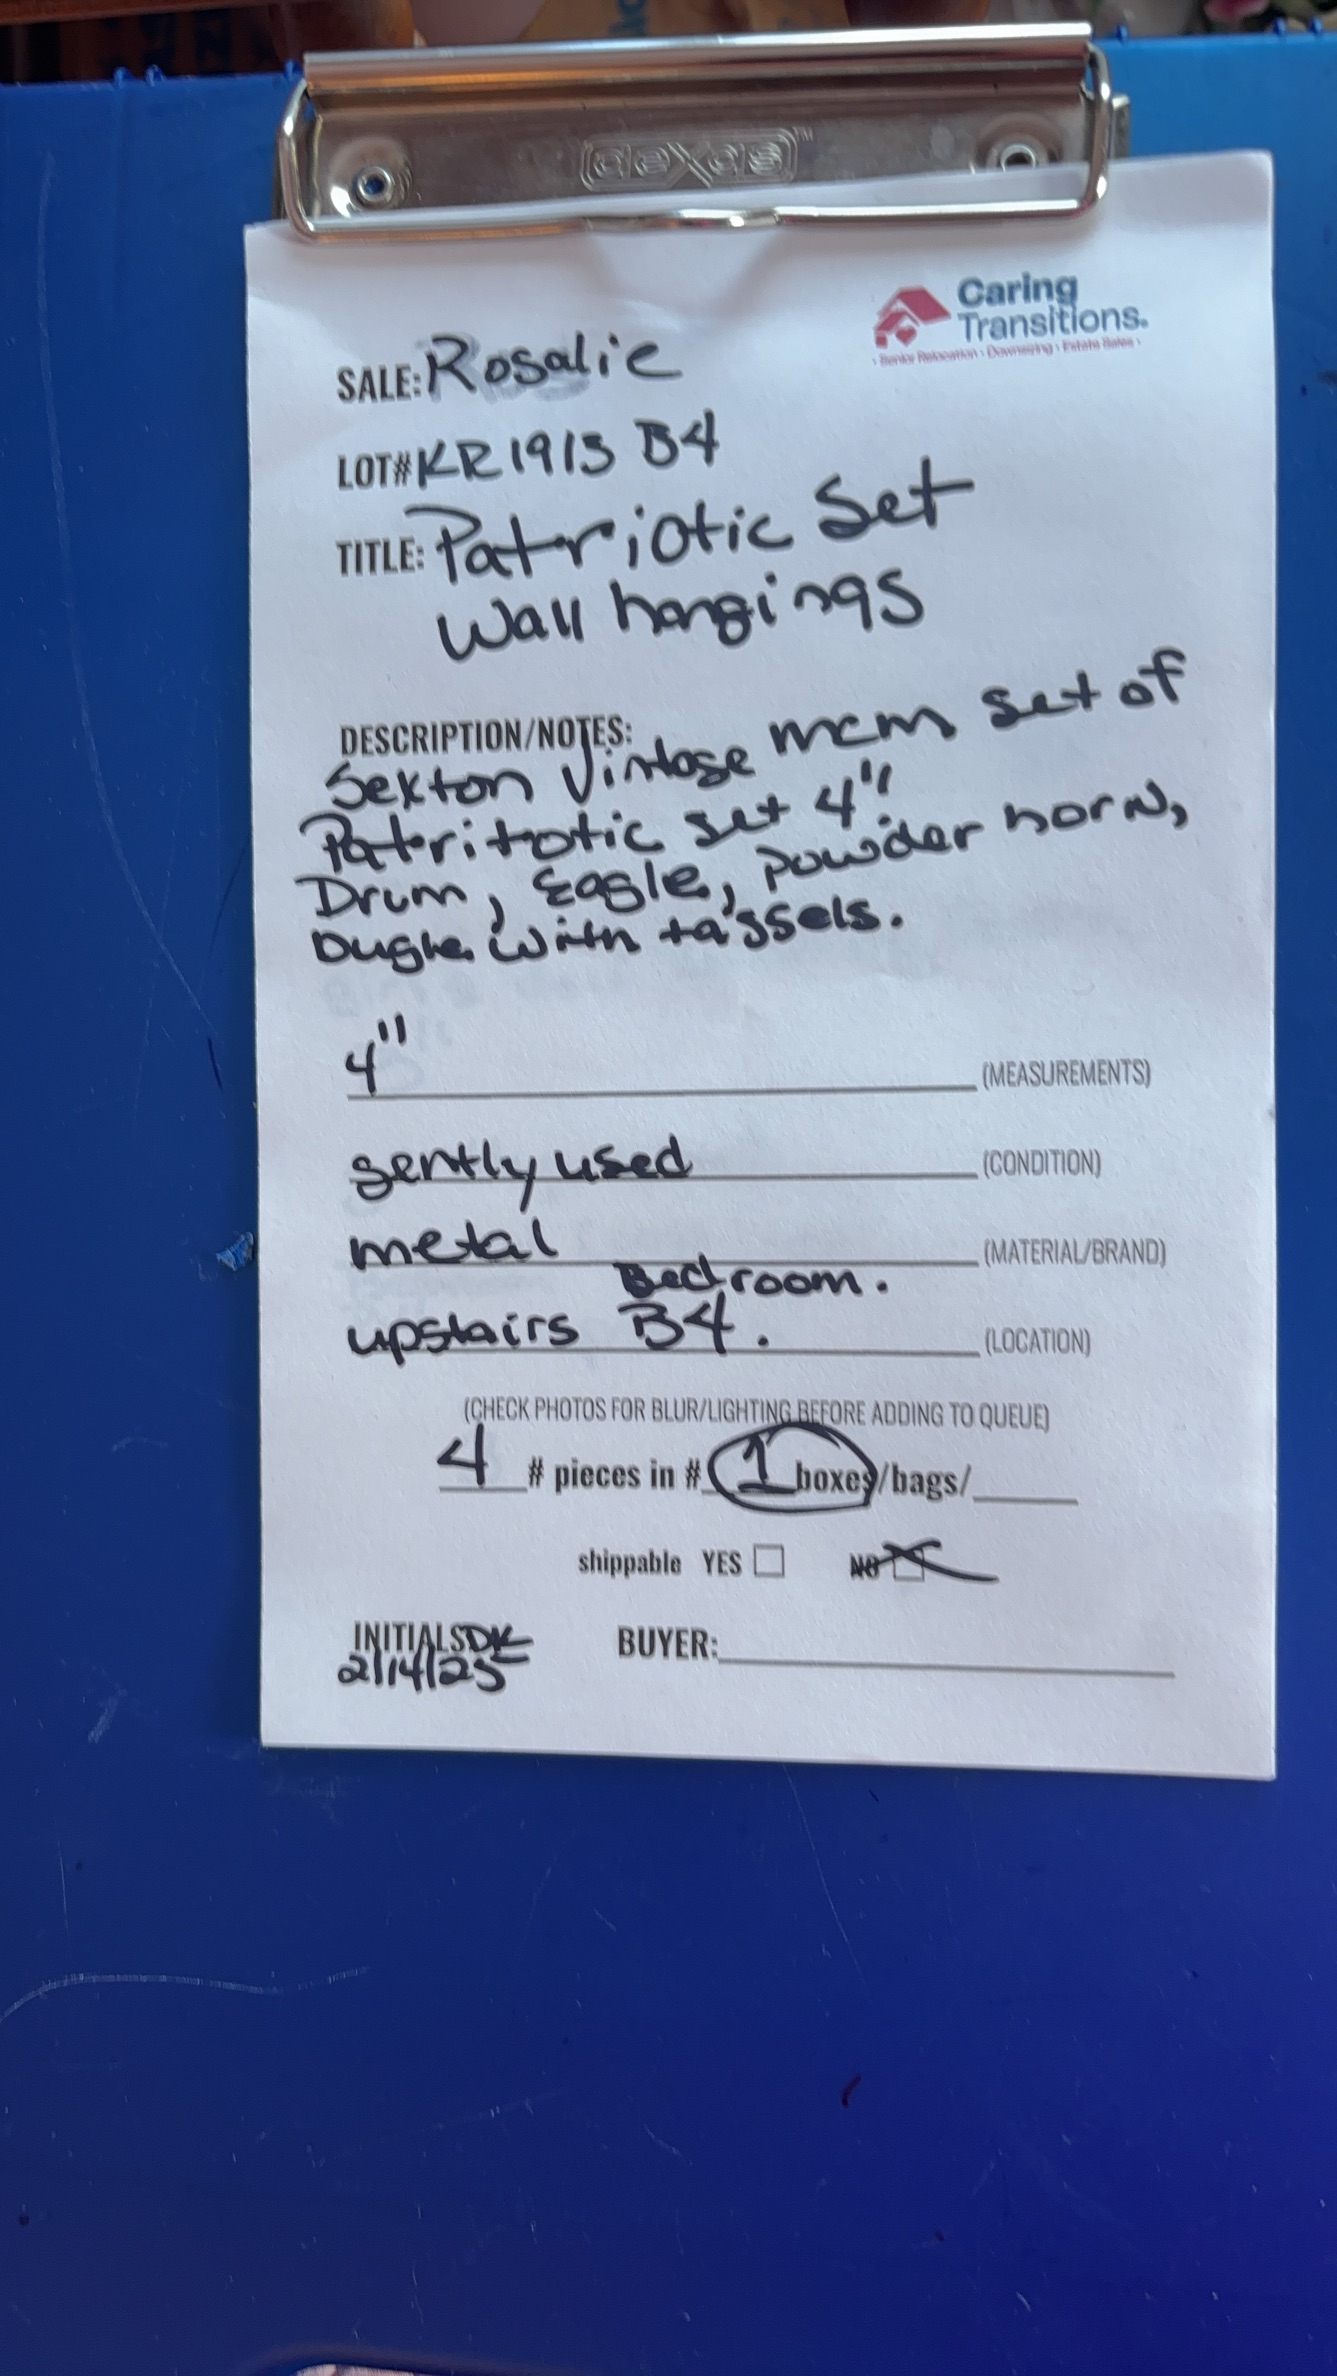 dexas™
Caring
Transitions.
· Senior Relocation · Downsizing · Estate Sales ·
SALE: Rosalie
LOT# KR1913 B4
TITLE: Patriotic Set
Wall hangings
DESCRIPTION/NOTES:
Sexton Vintage mcm set of
Patritotic set 4"
Drum, Eagle, powder horn,
Bugle with tassels.
4" (MEASUREMENTS)
gently used (CONDITION)
metal (MATERIAL/BRAND)
Bedroom.
upstairs B4. (LOCATION)
(CHECK PHOTOS FOR BLUR/LIGHTING BEFORE ADDING TO QUEUE)
4 # pieces in # 1 boxes/bags/
shippable YES NO
INITIALS DK BUYER:
2/14/25